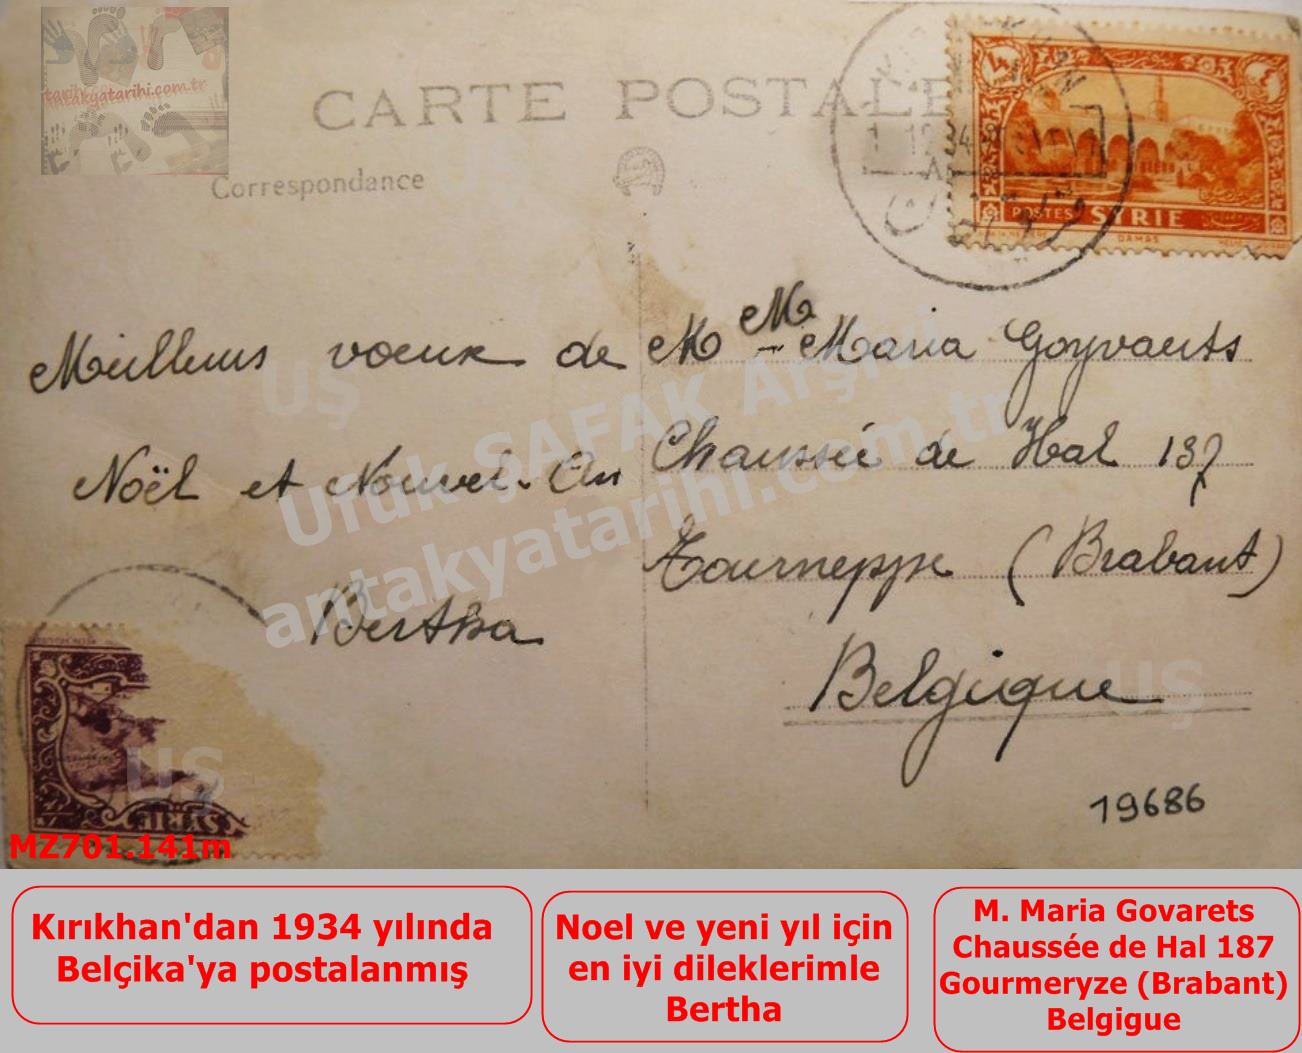 tarih
antakyatarihi.com.tr
CARTE POSTALE
Correspondance
12 34
A
POSTES SYRIE
DAMAS
Meilleurs voeux de
Noël et Nouvel-An
Bertha
M Mme Maria Goyvaerts
Chaussée de Hal 137
Tourneppe (Brabant)
Belgique
19686
SYRIE
Ufuk ŞAFAK Arşivi
antakyatarihi.com.tr
UŞ
UŞ
UŞ
MZ701.141m
Kırıkhan'dan 1934 yılında
Belçika'ya postalanmış
Noel ve yeni yıl için
en iyi dileklerimle
Bertha
M. Maria Govarets
Chaussée de Hal 187
Gourmeryze (Brabant)
Belgigue